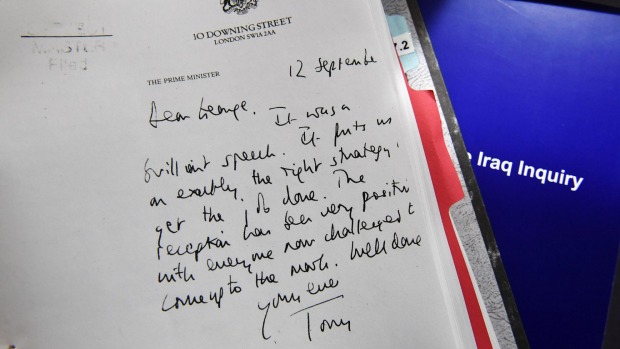 MINISTER
Filed
10 DOWNING STREET
LONDON SW1A 2AA
THE PRIME MINISTER
12 September
Dear George. It was a
brilliant speech. It puts us
on exactly the right strategy to
get the job done. The
reception has been very positive
with everyone now challenged to
come up to the mark. Well done
Yours ever
Tony
7.2
e Iraq Inquiry